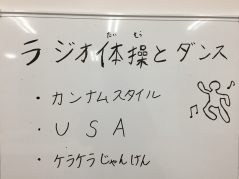 たい そう
ラジオ体操とダンス
・カンナムスタイル
・USA
・ケラケラじゃんけん